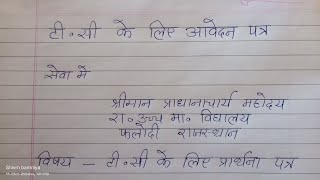 टी॰सी के लिए आवेदन पत्र
सेवा मे
श्रीमान प्राधानाचार्य महोदय
रा॰ उच्च मा॰ विद्यालय
फलोदी राजस्थान
विषय – टी॰सी के लिए प्रार्थना पत्र